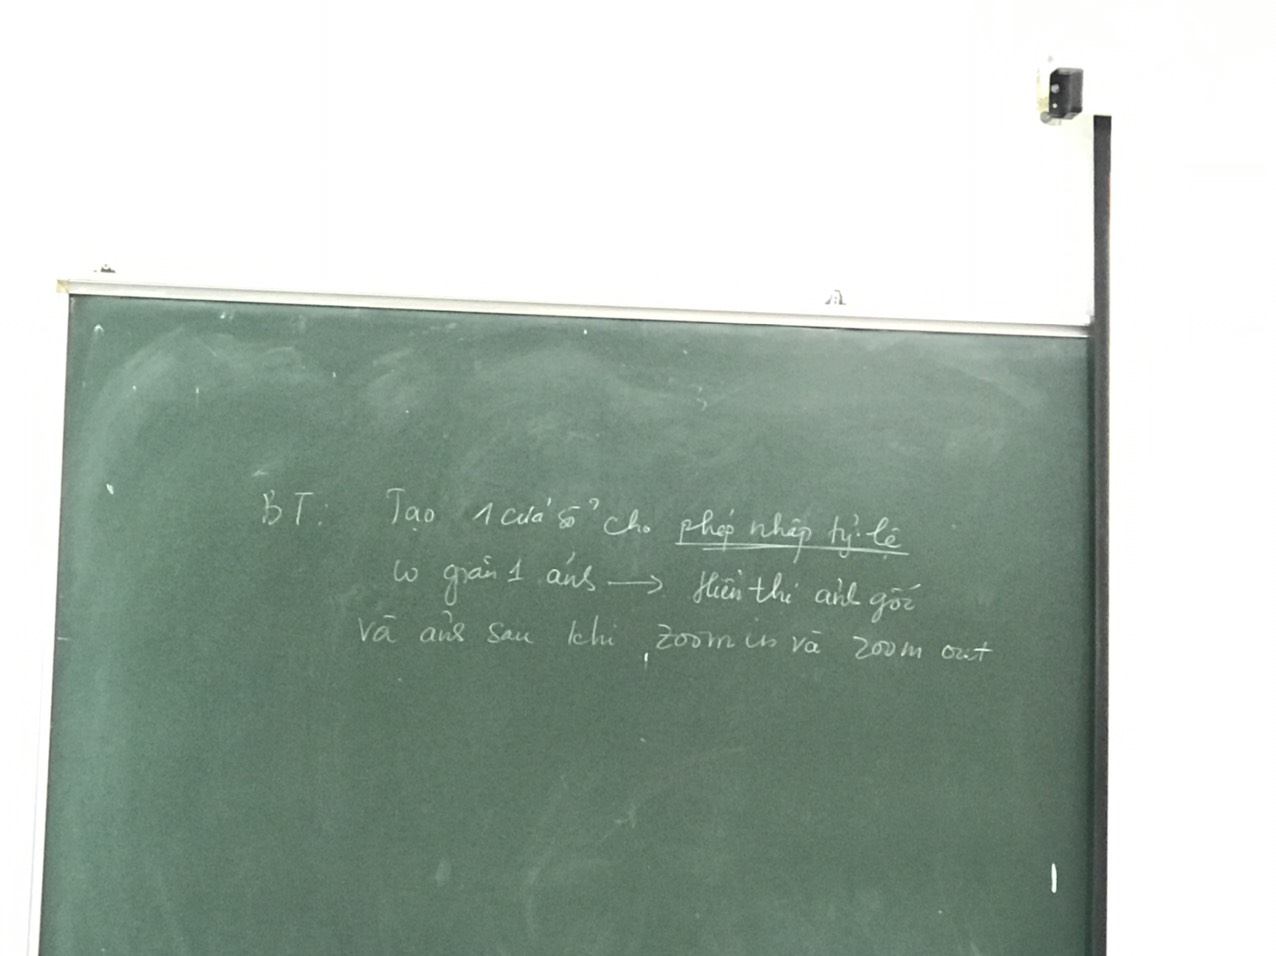 BT: Tạo 1 cửa sổ cho phép nhập tỷ lệ
co giãn 1 ảnh → Hiển thị ảnh gốc
và ảnh sau khi zoom in và zoom out